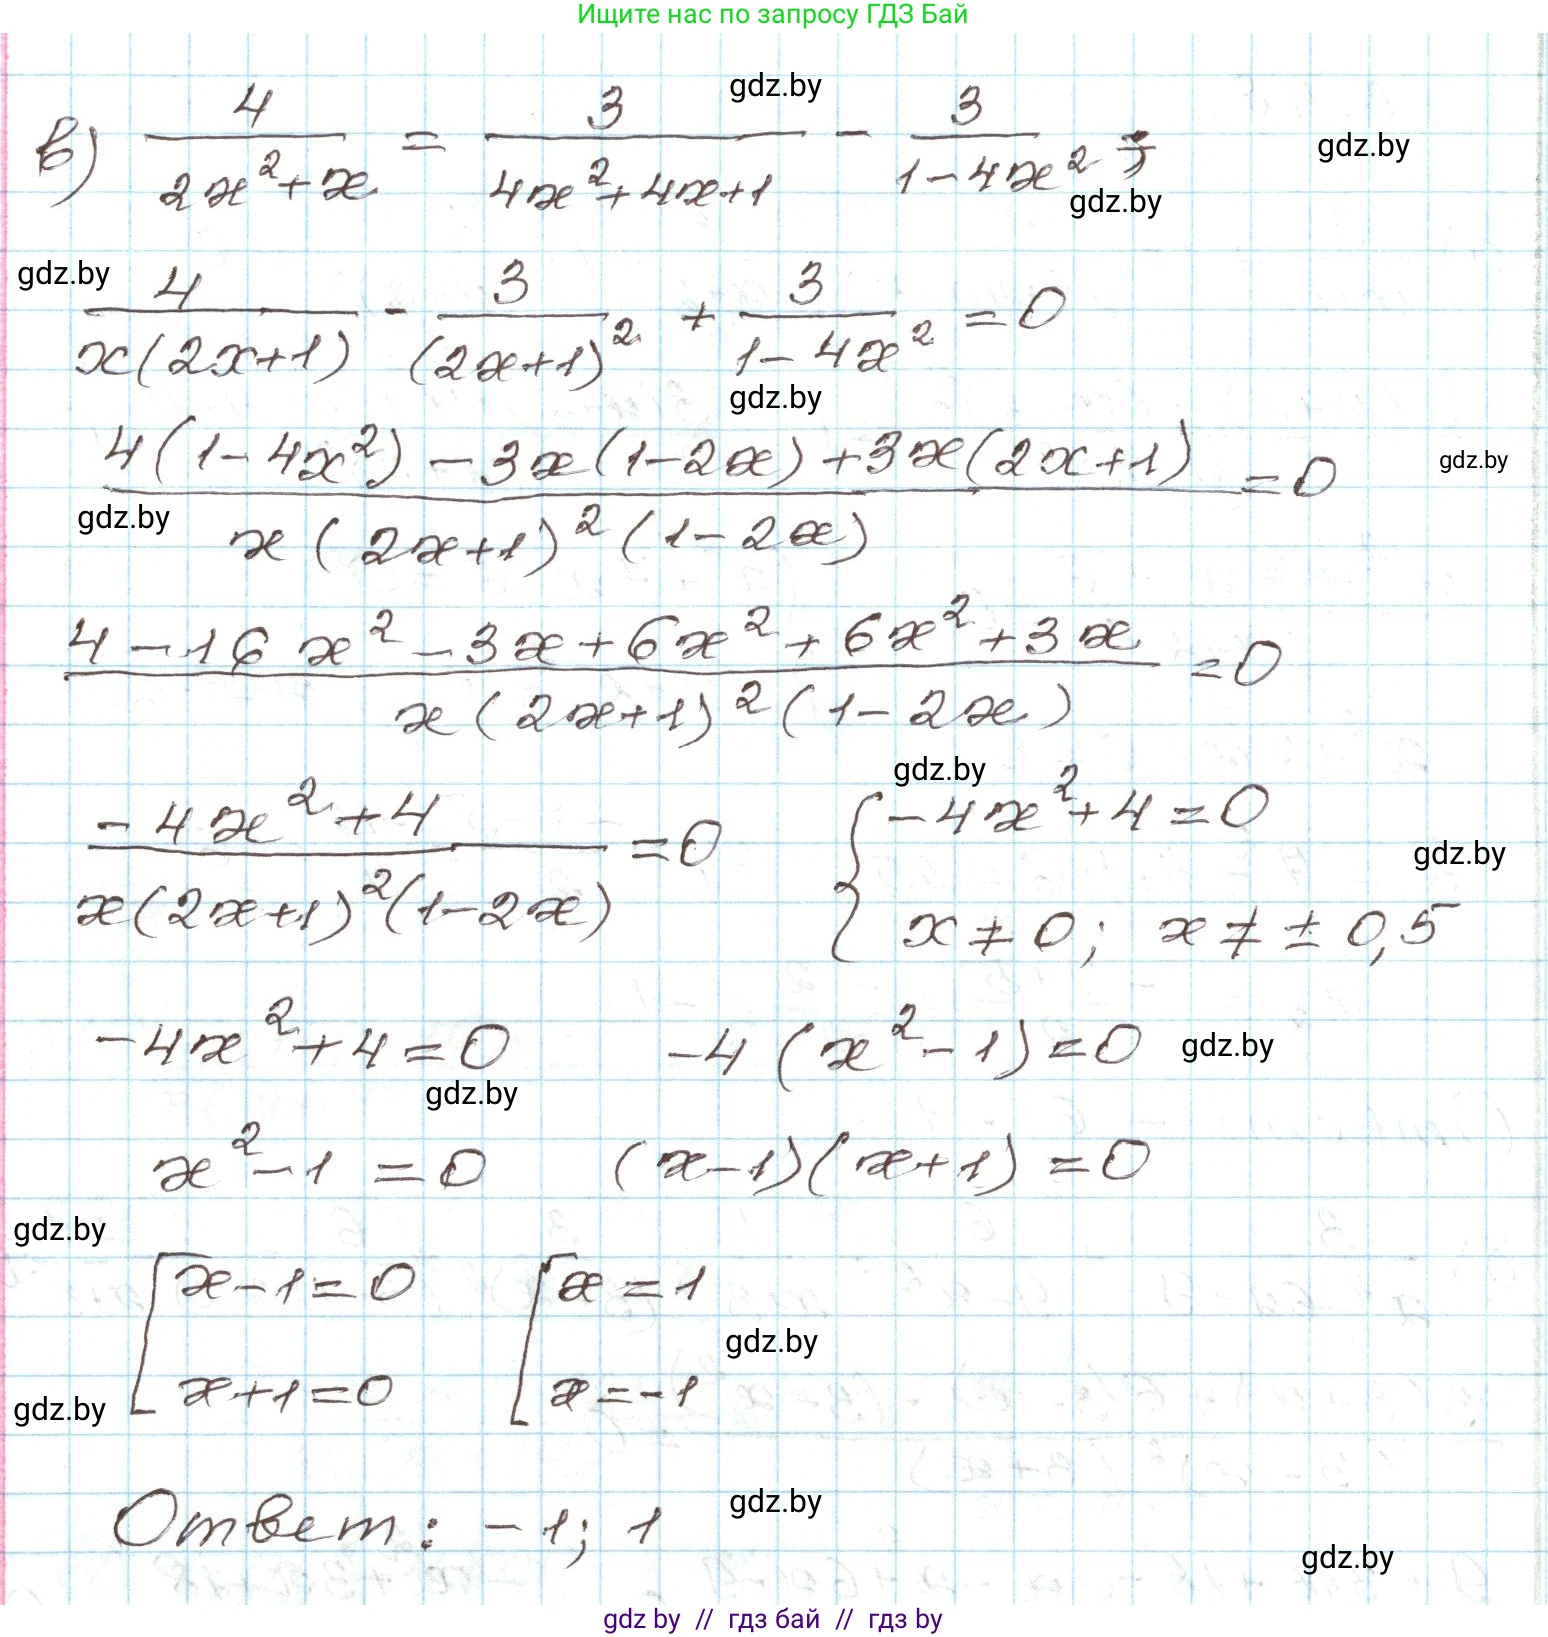 Ищите нас по запросу ГДЗ Бай
gdz.by
в) 4/(2x²+x) = 3/(4x²+4x+1) - 3/(1-4x²);
gdz.by
gdz.by
gdz.by
4/(x(2x+1)) - 3/(2x+1)² + 3/(1-4x²) = 0
gdz.by
(4(1-4x²) - 3x(1-2x) + 3x(2x+1))/(x(2x+1)²(1-2x)) = 0
gdz.by
gdz.by
(4-16x²-3x+6x²+6x²+3x)/(x(2x+1)²(1-2x)) = 0
gdz.by
(-4x²+4)/(x(2x+1)²(1-2x)) = 0 { -4x²+4=0
gdz.by
x≠0; x≠±0,5
-4x²+4=0 -4(x²-1)=0 gdz.by
gdz.by
x²-1=0 (x-1)(x+1)=0
gdz.by
[ x-1=0 [ x=1
gdz.by
x+1=0 x=-1
gdz.by
Ответ: -1; 1
gdz.by
gdz.by
gdz by // гдз бай // гдз by